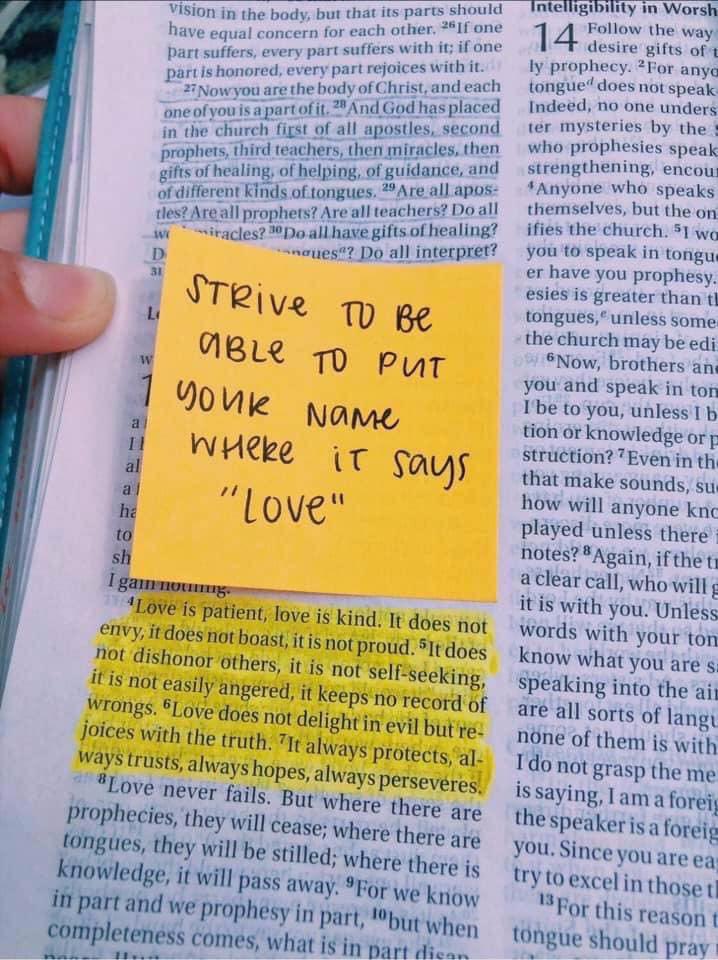 vision in the body, but that its parts should
have equal concern for each other. 26If one
part suffers, every part suffers with it; if one
part is honored, every part rejoices with it.
27Now you are the body of Christ, and each
one of you is a part of it. 28And God has placed
in the church first of all apostles, second
prophets, third teachers, then miracles, then
gifts of healing, of helping, of guidance, and
of different kinds of tongues. 29Are all apos-
tles? Are all prophets? Are all teachers? Do all
miracles? 30Do all have gifts of healing?
Do all interpret?
31
STRIVE TO BE
ABLE TO PUT
YOUR NAME
WHERE IT SAYS
"LOVE"
I gain nothing.
4Love is patient, love is kind. It does not
envy, it does not boast, it is not proud. 5It does
not dishonor others, it is not self-seeking,
it is not easily angered, it keeps no record of
wrongs. 6Love does not delight in evil but re-
joices with the truth. 7It always protects, al-
ways trusts, always hopes, always perseveres.
8Love never fails. But where there are
prophecies, they will cease; where there are
tongues, they will be stilled; where there is
knowledge, it will pass away. 9For we know
in part and we prophesy in part, 10but when
completeness comes, what is in part
Intelligibility in
14 Follow the way
desire gifts of
ly prophecy. 2For
tongue d does not speak
Indeed, no one
ter mysteries by the
who prophesies
strengthening,
4Anyone who speaks
themselves, but the
ifies the church. 5I
you to speak in
er have you prophesy.
esies is greater than
tongues,e unless
the church may be
6Now, brothers
you and speak in
I be to you, unless I
tion or knowledge or
struction? 7Even in
that make sounds,
how will anyone
played unless there
notes? 8Again, if the
a clear call, who will
it is with you. Unless
words with your
know what you are
speaking into the air
are all sorts of
none of them is
I do not grasp the
is saying, I am a
the speaker is a
you. Since you are
try to excel in those
13For this reason
tongue should pray